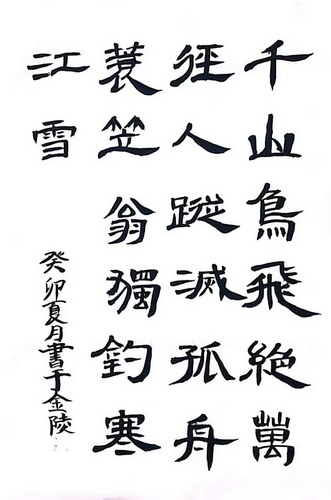 千山鳥飛絶萬
徑人蹤滅孤舟
蓑笠翁獨釣寒
江雪
癸卯夏月書于金陵